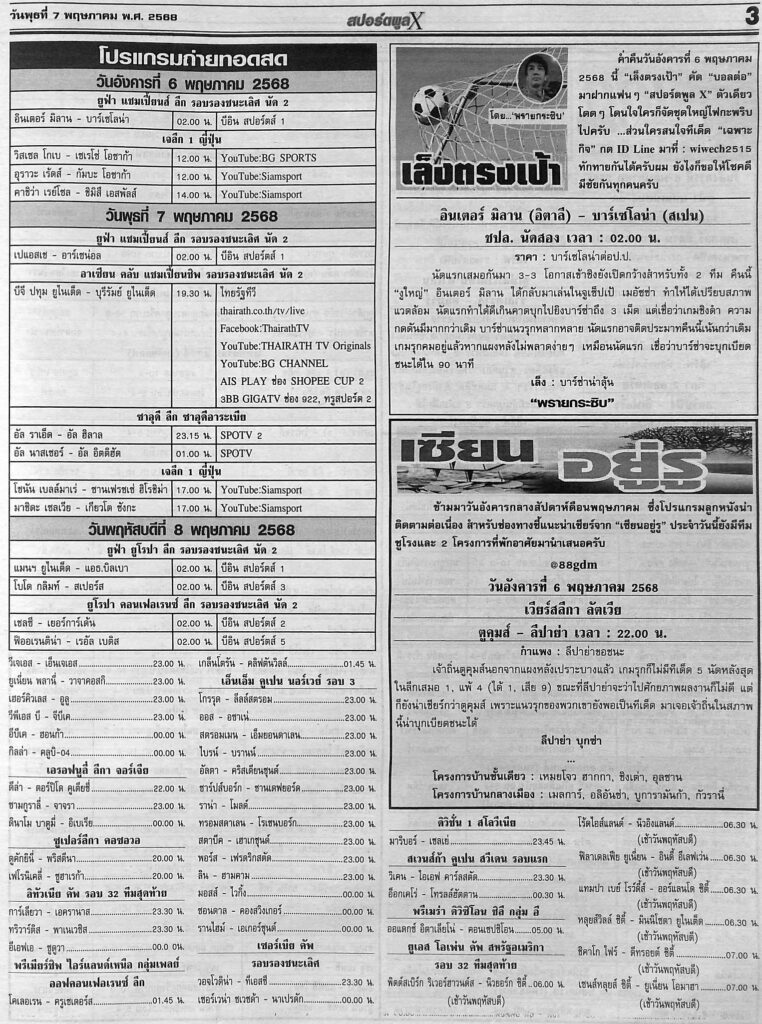 วันพุธที่ 7 พฤษภาคม พ.ศ. 2568
สปอร์ตพูลX
3
โปรแกรมถ่ายทอดสด
วันอังคารที่ 6 พฤษภาคม 2568
ยูฟ่า แชมเปี้ยนส์ ลีก รอบรองชนะเลิศ นัด 2
อินเตอร์ มิลาน - บาร์เซโลน่า 02.00 น. บีอิน สปอร์ตส์ 1
เจลีก 1 ญี่ปุ่น
วิสเซล โกเบ - เซเรโซ่ โอซาก้า 12.00 น. YouTube:BG SPORTS
อุราวะ เร้ดส์ - กัมบะ โอซาก้า 12.00 น. YouTube:Siamsport
คาชิว่า เรย์โซล - ชิมิสึ เอสพัลส์ 14.00 น. YouTube:Siamsport
วันพุธที่ 7 พฤษภาคม 2568
ยูฟ่า แชมเปี้ยนส์ ลีก รอบรองชนะเลิศ นัด 2
เปแอสเช - อาร์เซน่อล 02.00 น. บีอิน สปอร์ตส์ 1
อาเซียน คลับ แชมเปี้ยนชิพ รอบรองชนะเลิศ นัด 2
บีจี ปทุม ยูไนเต็ด - บุรีรัมย์ ยูไนเต็ด 19.30 น. ไทยรัฐทีวี
thairath.co.th/tv/live
Facebook:ThairathTV
YouTube:THAIRATH TV Originals
YouTube:BG CHANNEL
AIS PLAY ช่อง SHOPEE CUP 2
3BB GIGATV ช่อง 922, ทรูสปอร์ต 2
ซาอุดี ลีก ซาอุดีอาระเบีย
อัล ราเอ็ด - อัล ฮิลาล 23.15 น. SPOTV 2
อัล นาสเซอร์ - อัล อิตติฮัด 01.00 น. SPOTV
เจลีก 1 ญี่ปุ่น
โชนัน เบลล์มาเร่ - ซานเฟรซเซ่ ฮิโรชิม่า 17.00 น. YouTube:Siamsport
มาชิดะ เซลเวีย - เกียวโต ซังกะ 17.00 น. YouTube:Siamsport
วันพฤหัสบดีที่ 8 พฤษภาคม 2568
ยูฟ่า ยูโรปา ลีก รอบรองชนะเลิศ นัด 2
แมนฯ ยูไนเต็ด - แอธ.บิลเบา 02.00 น. บีอิน สปอร์ตส์ 1
โบโด กลิมท์ - สเปอร์ส 02.00 น. บีอิน สปอร์ตส์ 3
ยูโรปา คอนเฟอเรนซ์ ลีก รอบรองชนะเลิศ นัด 2
เชลซี - เยอร์การ์เด้น 02.00 น. บีอิน สปอร์ตส์ 2
ฟิออเรนติน่า - เรอัล เบติส 02.00 น. บีอิน สปอร์ตส์ 5
วีเจเอส - เอ็นเจเอส 23.00 น.
ยูเนี่ยน พลานี่ - วาจาคอสกิ 23.00 น.
เฮอร์คิวเลส - อูลู 23.00 น.
วีพีเอส บี - จีบีเค 23.00 น.
อีบีเค - ฮอนก้า 00.00 น.
กิลล่า - คลูบิ-04 00.00 น.
เอรอฟนูลี่ ลีกา จอร์เจีย
ดีล่า - ตอร์ปิโด คูเตยซี่ 22.00 น.
ซามกูราลี่ - จาจรา 23.00 น.
ดินาโม บาตูมี่ - อิเบเรีย 00.00 น.
ซูเปอร์ลีกา คอซอวอ
ดูคักยินี่ - พริสตีนา 20.00 น.
เฟโรนิเคลี่ - ซูฮาเรก้า 20.00 น.
ลิทัวเนีย คัพ รอบ 32 ทีมสุดท้าย
การ์เลียวา - เอครานาส 23.30 น.
ทริวาร์ติส - พาเนวซิส 23.30 น.
อีเอฟเอ - ซูดูวา 00.0 0น.
พรีเมียร์ชิพ ไอร์แลนด์เหนือ กลุ่มเพลย์
ออฟคอนเฟอเรนซ์ ลีก
โคเลอเรน - ครูเซเดอร์ส 01.45 น.
เกล็นโตรัน - คลิฟตันวิลล์ 01.45 น.
เอ็นเอ็ม คูเปน นอร์เวย์ รอบ 3
โกรรุด - ลีลล์สตรอม 23.00 น.
ออส - อซาเน่ 23.00 น.
สตรอมเมน - เอ็มยอนดาเลน 23.00 น.
ไบรน์ - บรานน์ 23.00 น.
อัลตา - คริสเตียนซุนด์ 23.00 น.
ซาร์ปส์บอร์ก - ซานเดฟยอร์ด 23.00 น.
ราน่า - โมลด์ 23.00 น.
ทรอมสดาเลน - โรเซนบอร์ก 23.00 น.
สตาบีค - เฮาเกซุนด์ 23.00 น.
พอร์ส - เฟรดริกสตัด 23.00 น.
ลิน - ฮามคาม 23.00 น.
มอสส์ - ไวกิ้ง 00.00 น.
ซอนดาล - คองสวิงเกอร์ 00.00 น.
รานไฮม์ - เอเกอร์ซุนด์ 00.00 น.
เซอร์เบีย คัพ
รอบรองชนะเลิศ
วอจโวดิน่า - ทีเอสซี 23.00 น.
เซอร์เวน่า ซเวซด้า - นาเปรดัก 00.00 น.
โดย...'พรายกระซิบ'
เล็งตรงเป้า
ค่ำคืนวันอังคารที่ 6 พฤษภาคม
2568 นี้ "เล็งตรงเป้า" คัด "บอลต่อ"
มาฝากแฟนๆ "สปอร์ตพูล X" ตัวเดียว
โดดๆ โดนใจใครก็จัดชุดใหญ่ไฟกะพริบ
ไปครับ ...ส่วนใครสนใจทีเด็ด "เฉพาะ
กิจ" กด ID Line มาที่ : wiwech2515
ทักทายกันได้ครับผม ยังไงก็ขอให้โชคดี
มีชัยกันทุกคนครับ
อินเตอร์ มิลาน (อิตาลี) - บาร์เซโลน่า (สเปน)
ชปล. นัดสอง เวลา : 02.00 น.
ราคา : บาร์เซโลน่าต่อป.ป.
นัดแรกเสมอกันมา 3-3 โอกาสเข้าชิงยังเปิดกว้างสำหรับทั้ง 2 ทีม คืนนี้
"งูใหญ่" อินเตอร์ มิลาน ได้กลับมาเล่นในจูเซ็ปเป้ เมอัซซ่า ทำให้ได้เปรียบสภาพ
แวดล้อม นัดแรกทำได้ดีเกินคาดบุกไปยิงบาร์ซ่าถึง 3 เม็ด แต่เชื่อว่าเกมชิงดำ ความ
กดดันมีมากกว่าเดิม บาร์ซ่าแนวรุกหลากหลาย นัดแรกอาจติดประมาทคืนนี้เน้นกว่าเดิม
เกมรุกคมอยู่แล้วหากแผงหลังไม่พลาดง่ายๆ เหมือนนัดแรก เชื่อว่าบาร์ซ่าจะบุกเบียด
ชนะได้ใน 90 นาที
เล็ง : บาร์ซ่าน่าลุ้น
"พรายกระซิบ"
เซียนอยู่รู
ข้ามมาวันอังคารกลางสัปดาห์เดือนพฤษภาคม ซึ่งโปรแกรมลูกหนังน่า
ติดตามต่อเนื่อง สำหรับช่องทางชี้แนะน่าเชียร์จาก "เซียนอยู่รู" ประจำวันนี้ยังมีทีม
ชูโรงและ 2 โครงการที่พักอาศัยมานำเสนอครับ
@88gdm
วันอังคารที่ 6 พฤษภาคม 2568
เวียร์สลีกา ลัตเวีย
ตูคุมส์ - ลีปาย่า เวลา : 22.00 น.
กำแพง : ลีปาย่าขอชนะ
เจ้าถิ่นตูคุมส์นอกจากแผงหลังเปราะบางแล้ว เกมรุกก็ไม่มีทีเด็ด 5 นัดหลังสุด
ในลีกเสมอ 1, แพ้ 4 (ได้ 1, เสีย 9) ขณะที่ลีปาย่าจะว่าไปศักยภาพผลงานก็ไม่ดี แต่
ก็ยังน่าเชียร์กว่าตูคุมส์ เพราะแนวรุกของพวกเขายังพอเป็นทีเด็ด มาเจอเจ้าถิ่นในสภาพ
นี้น่าบุกเบียดชนะได้
ลีปาย่า บุกซ่า
...
โครงการบ้านชั้นเดียว : เหมยโจว ฮากกา, ชิงเต่า, อุลซาน
โครงการบ้านกลางเมือง : เมลการ์, อลิอันซ่า, บูการามันก้า, กัวรานี่
ดิวิชั่น 1 สโลวีเนีย
มาริบอร์ - เซลเย่ 23.45 น.
สเวนส์ก้า คูเปน สวีเดน รอบแรก
วิเคน - โอเอฟ คาร์ลสตัด 23.30 น.
อ็อกเคโร่ - โทรลล์ฮัตตาน 00.30 น.
พรีเมร่า ดิวิซิโอน ชิลี กลุ่ม อี
ออแดกซ์ อิตาเลียโน่ - คอนเซปซิโอน 05.00 น.
ยูเอส โอเพ่น คัพ สหรัฐอเมริกา
รอบ 32 ทีมสุดท้าย
พิตต์สเบิร์ก ริเวอร์ฮาวนด์ส - นิวยอร์ก ซิตี้ 06.00 น.
(เช้าวันพฤหัสบดี)
โร้ดไอส์แลนด์ - นิวอิงแลนด์ 06.30 น.
(เช้าวันพฤหัสบดี)
ฟิลาเดลเฟีย ยูเนี่ยน - อินดี้ อีเลฟเว่น 06.30 น.
(เช้าวันพฤหัสบดี)
แทมปา เบย์ โรว์ดี้ส์ - ออร์แลนโด ซิตี้ 06.30 น.
(เช้าวันพฤหัสบดี)
หลุยส์วิลล์ ซิตี้ - มินนิโซตา ยูไนเต็ด 06.30 น.
(เช้าวันพฤหัสบดี)
ชิคาโก ไฟร์ - ดีทรอยต์ ซิตี้ 07.00 น.
(เช้าวันพฤหัสบดี)
เซนต์หลุยส์ ซิตี้ - ยูเนี่ยน โอมาฮา 07.00 น.
(เช้าวันพฤหัสบดี)